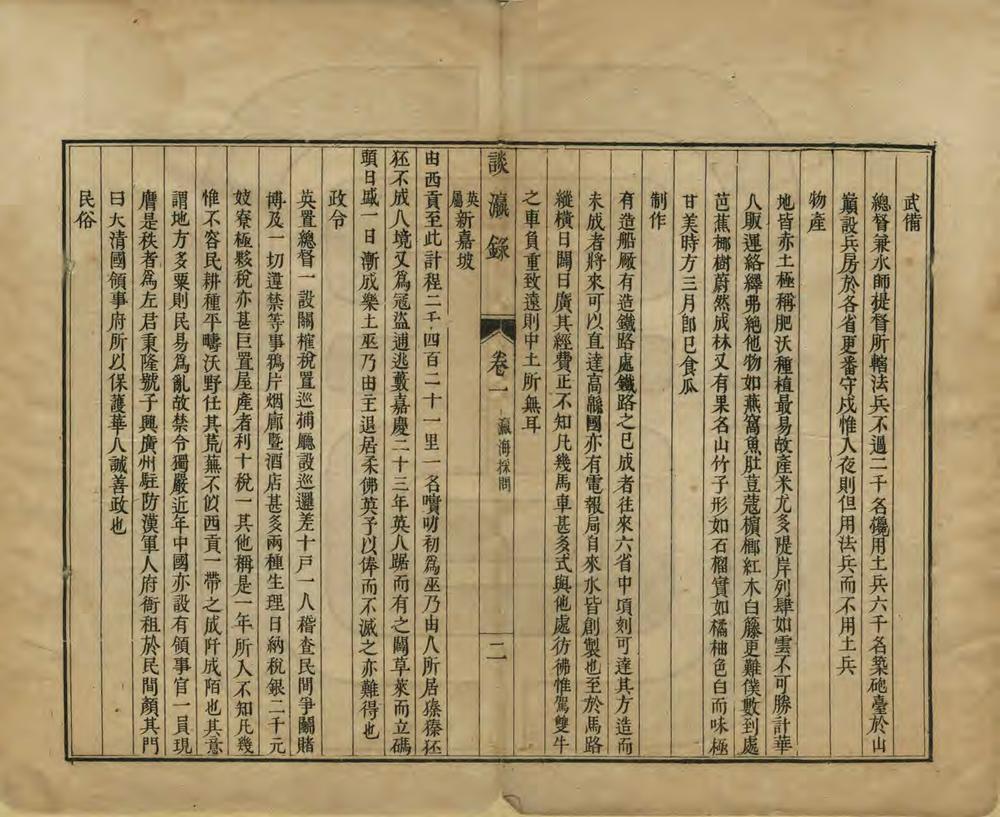 武備
總督兼水師提督所轄法兵不過二千名礮用土兵六千名築砲臺於山
巔設兵房於各省更番守戍惟入夜則但用法兵而不用土兵
物產
地皆赤土極稱肥沃種植最易故產米尤多隄岸列肆如雲不可勝計華
人販運絡繹弗絕他物如燕窩魚肚荳蔻檳榔紅木白籐更難僕數到處
芭蕉椰樹蔚然成林又有果名山竹子形如石榴實如橘柚色白而味極
甘美時方三月郎已食瓜
制作
有造船厰有造鐵路處鐵路之已成者往來六省中項刻可達其方造而
未成者將來可以直達高緜國亦有電報局自來水皆創製也至於馬路
縱橫日闢日廣其經費正不知凡幾馬車甚多式與他處彷彿惟駕雙牛
之車負重致遠則中土所無耳
談瀛錄 卷一 瀛海採問 二
英屬新嘉坡
由西貢至此計程二千四百二十一里一名嘪叻初爲巫乃由人所居獉獉狉
狉不成人境又爲冦盜逋逃藪嘉慶二十三年英人踞而有之闢草萊而立碼
頭日盛一日漸成樂土巫乃由主退居柔佛英予以俸而不滅之亦難得也
政令
英置總督一設關榷稅置巡捕廳設巡邏差十戸一人稽查民間爭鬭賭
博及一切違禁等事鴉片烟廊曁酒店甚多兩種生理日納稅銀二千元
妓寮極夥稅亦甚巨置屋產者利十稅一其他稱是一年所入不知凡幾
惟不容民耕種平疇沃野任其荒蕪不似西貢一帶之成阡成陌也其意
謂地方多粟則民易爲亂故禁令獨嚴近年中國亦設有領事官一員現
膺是秩者爲左君秉隆號子興廣州駐防漢軍人府衙租於民間顏其門
曰大清國領事府所以保護華人誠善政也
民俗